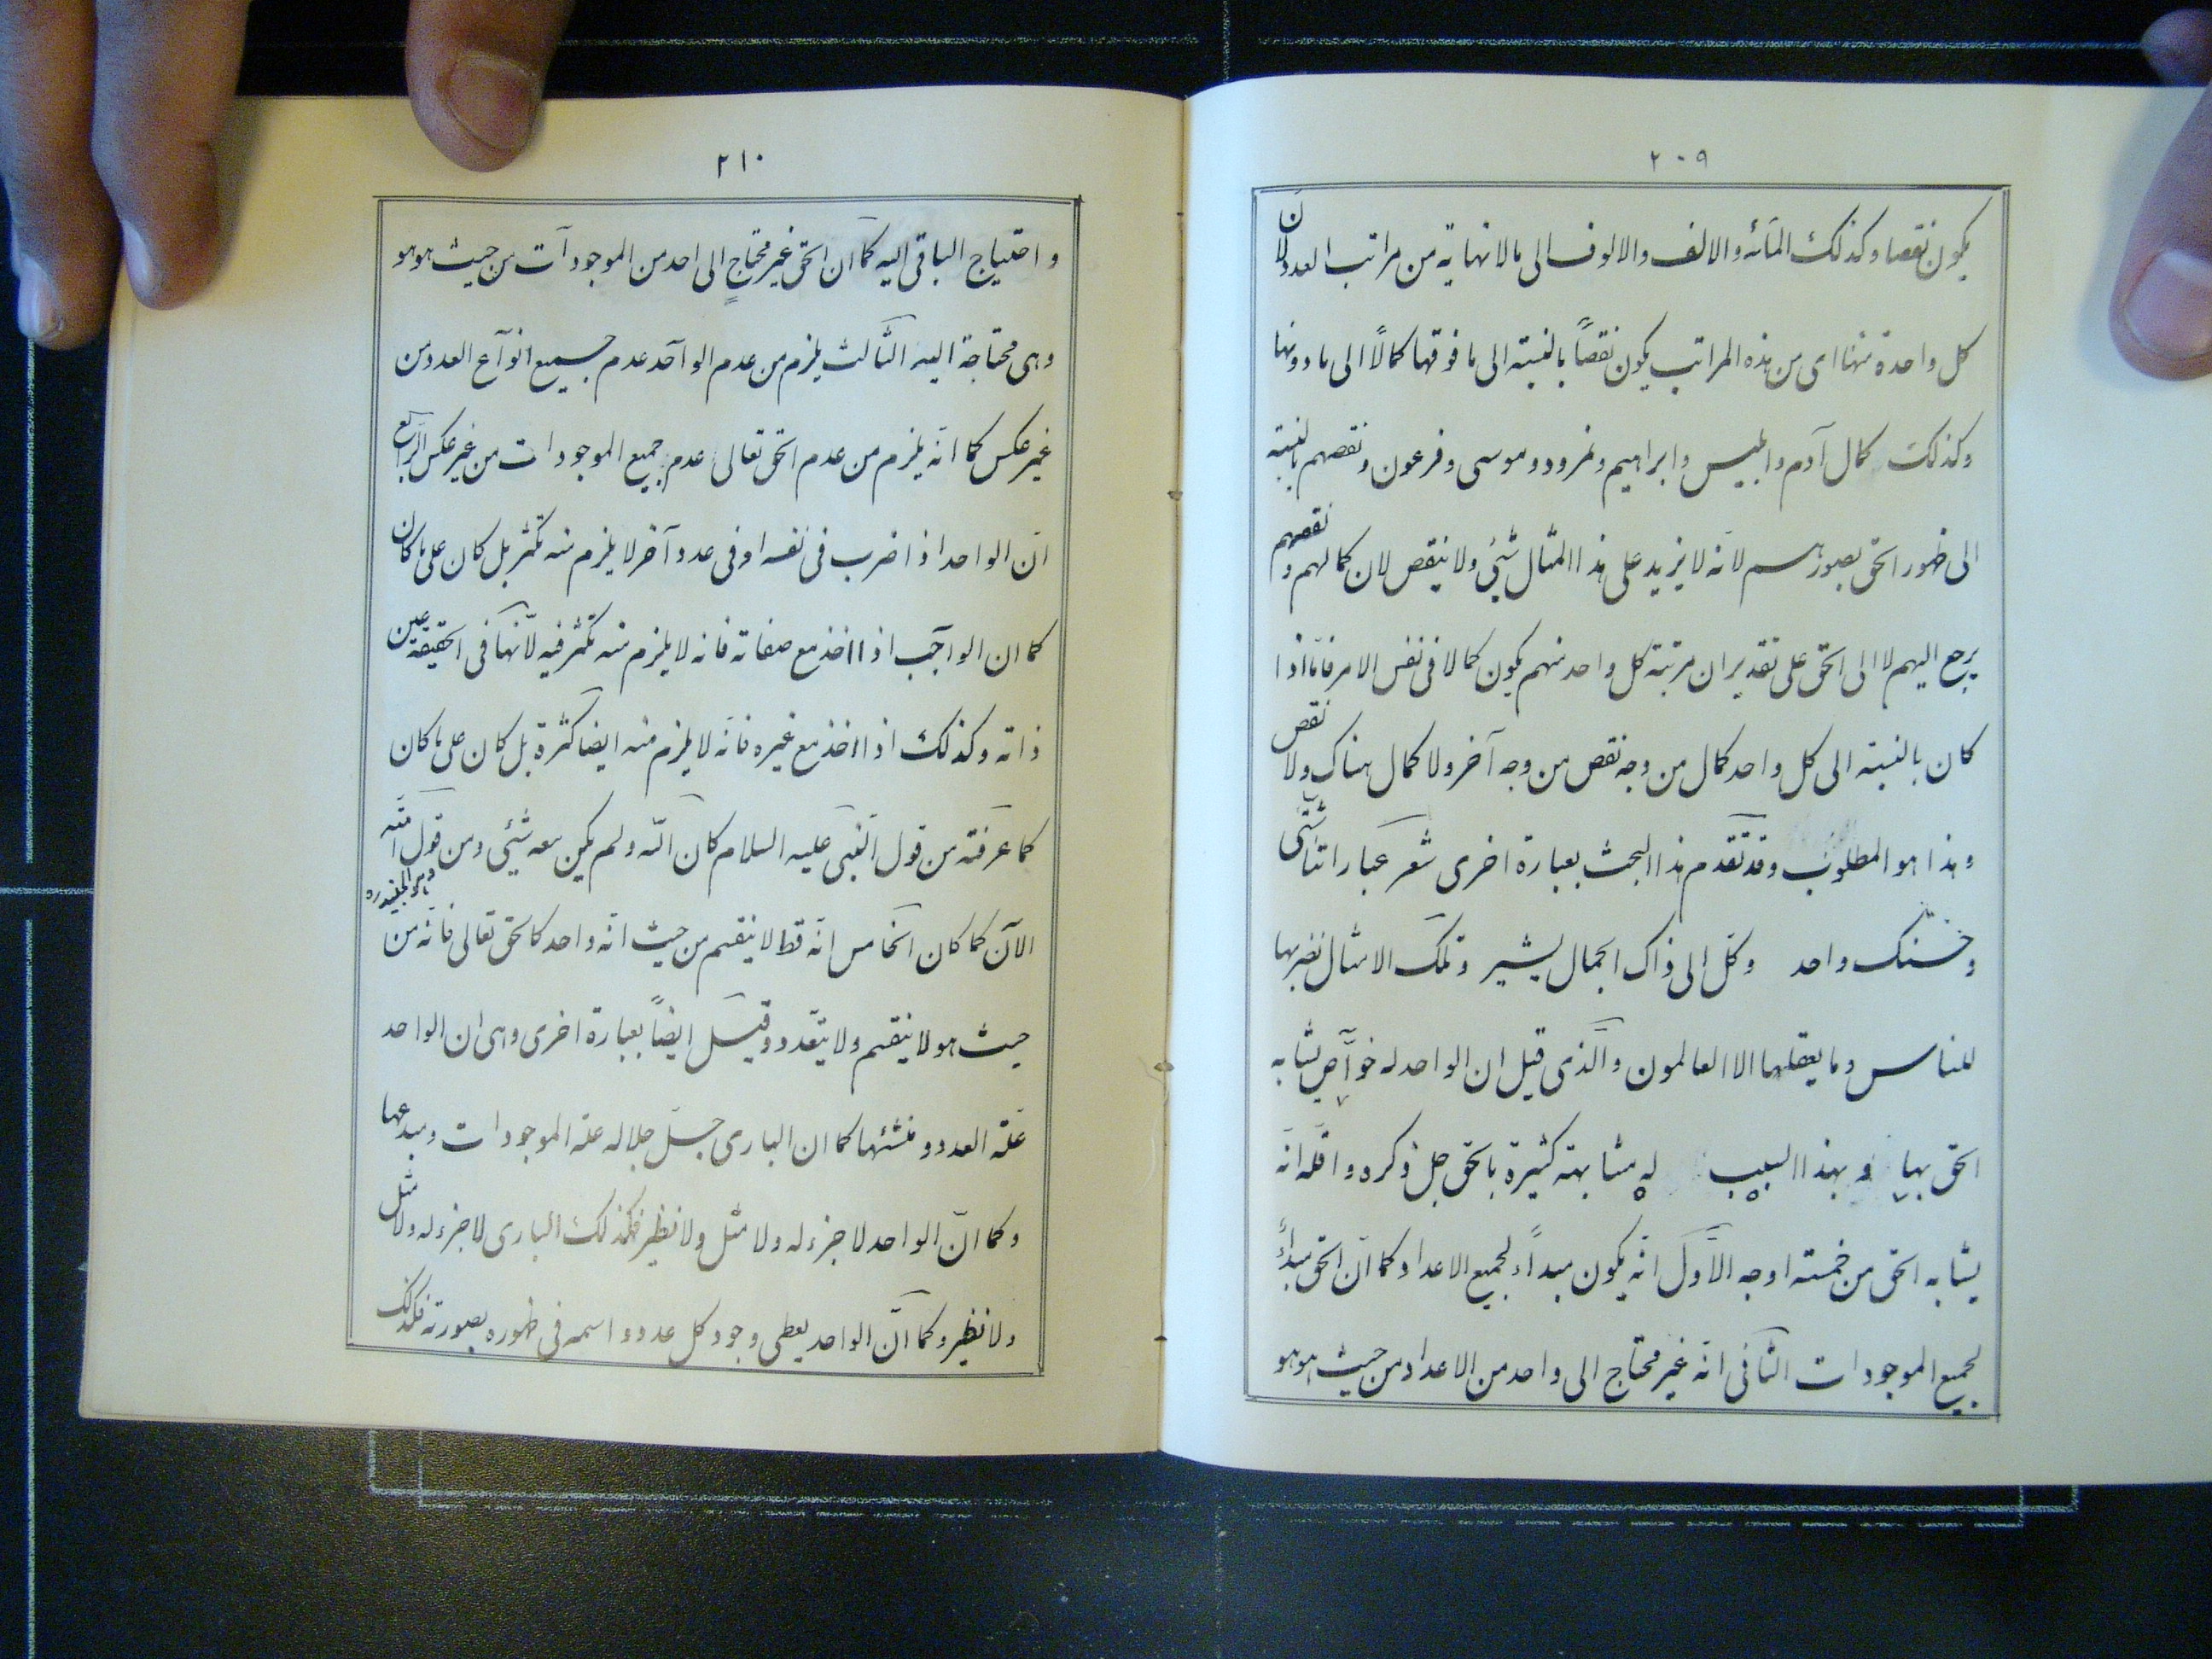 ٢٠٩
يكون نقصا وكذلك المأئه والالف والالوف الى مالانهاية من مراتب العدد لان
كل واحدة منها اى من هذه المراتب يكون نقصاً بالنسبته الى ما فوقها كمالاً الى ما دونها
وكذلك كمال آدم وابليس وابراهيم ونمرود وموسى وفرعون ونقصهم بالنسبته
الى ظهور الحق بصورهم لانه لا يزيد على هذا المثال شيئ ولا ينقص لان كمالهم ونقصهم
يرجع اليهم لا الى الحق على تقدير ان مرتبة كل واحد منهم يكون كمالا فى نفس الامر فانّه اذا
كان بالنسبته الى كل واحد كمال من وجه نقص من وجه آخر ولا كمال هناك ولا نقص
وهذا هو المطلوب وقد تقدم هذا البحث بعبارة اخرى شعر عباراتنا شتّى
وحسنك واحد وكلّ الى ذاك الجمال يشير وتلك الامثال نضربها
للناس وما يعقلها الا العالمون والّذى قيل ان الواحد له خوآص يشابه
الحق بها وبهذا السبب له مشابهته كثيرة بالحق جل ذكره واقله انّه
يشابه الحق من خمسته اوجه الاّول انّه يكون مبداً لجميع الاعداد كما انّ الحق مبدأ
لجميع الموجودات الثّانى انّه غير محتاج الى واحد من الاعداد من حيث هوهو
٢١٠
واحتياج الباقى اليه كما ان الحق غير محتاجٍ الى احد من الموجودآت من حيث هوهو
وهى محتاجة اليه الثّالث يلزم من عدم الواحد عدم جميع انوآع العدد من
غير عكس كما انّه يلزم من عدم الحق تعالى عدم جميع الموجودات من غير عكس الرّابع
انّ الواحد اذا ضرب فى نفسه او فى عدد آخر لا يلزم منه تكثر بل كان على ما كان
كما ان الواجب اذا اخذ مع صفاته فانه لا يلزم منه تكثر فيه لانّها فى الحقيقة عين
ذاته وكذلك اذا اخذ مع غيره فانّه لا يلزم منه ايضا كثرة بل كان على ما كان
كما عرفته من قول النّبى عليه السلام كان اللّه ولم يكن معه شيئى ومن قول امّته
الآن كما كان الخامس انّه قط لا ينقسم من حيث انّه واحد كالحق تعالى فانّه من
حيث هو لا ينقسم ولا يتعّدد وقيل ايضاً بعبارة اخرى وهى ان الواحد
علّة العدد ومنشئها كما ان البارى جلّ جلاله علة الموجودات ومبدعها
وكما انّ الواحد لا جزء له ولا مثل ولا نظير فكذلك البارى لا جزء له ولا مثل
ولا نظير وكما انّ الواحد يعطى وجود كل عدد واسمه فى ظهوره بصورته فكذلك